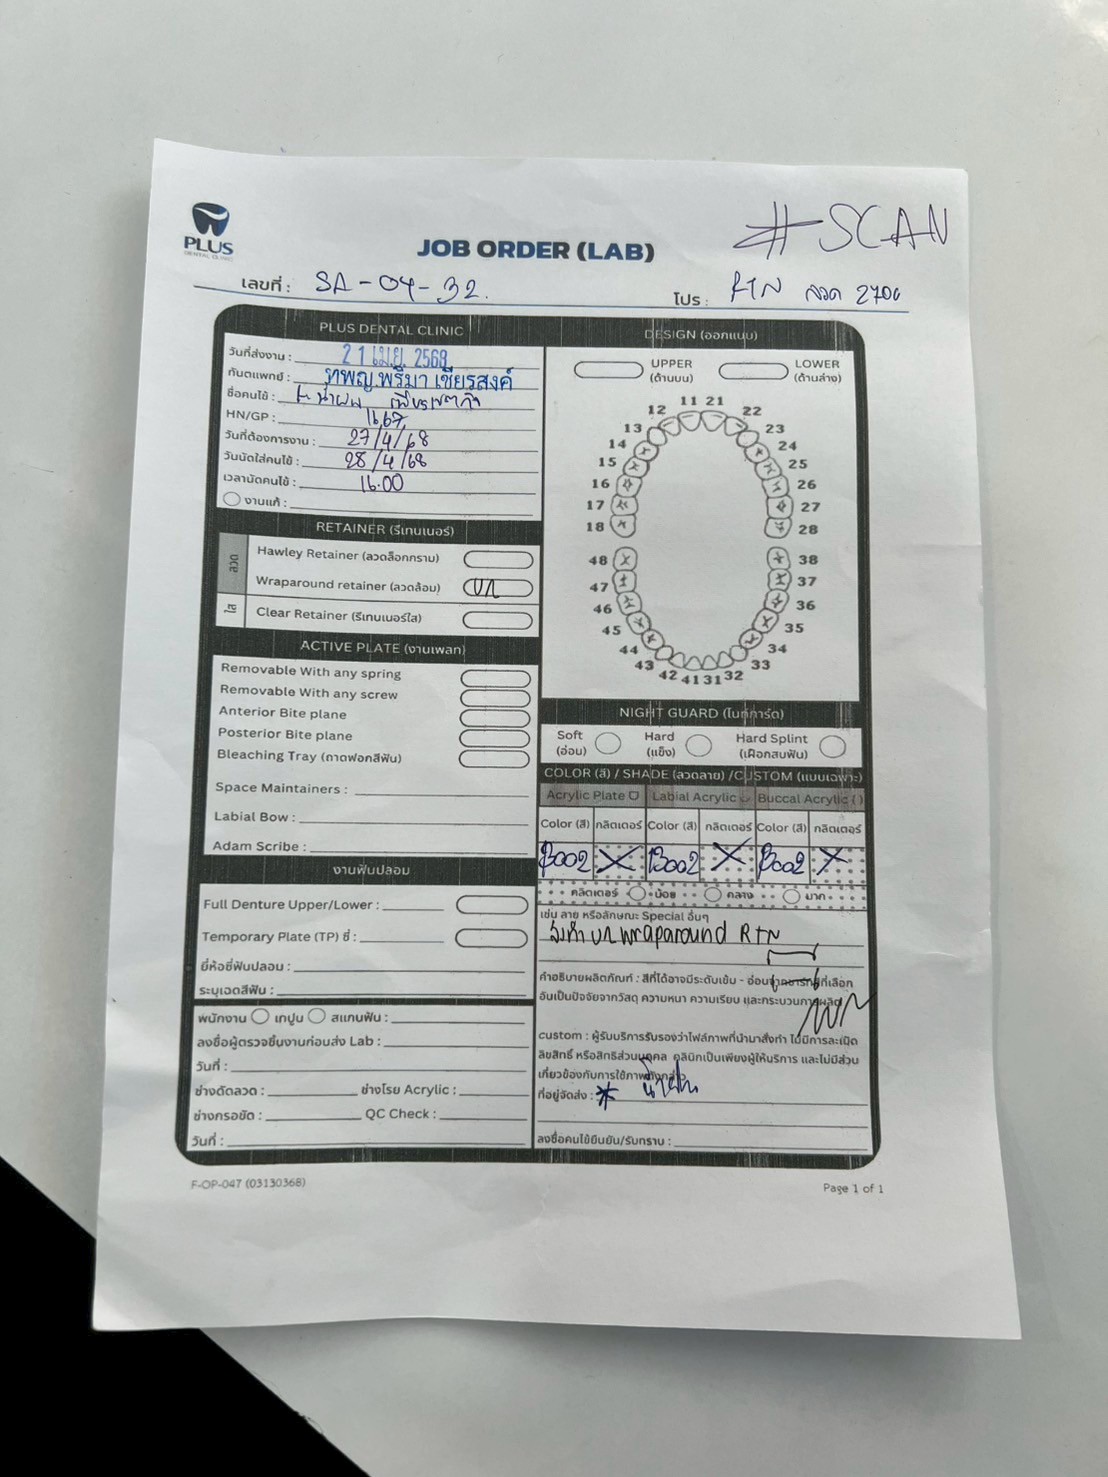 PLUS
DENTAL CLINIC
JOB ORDER (LAB)
# SCAN
เลขที่ : SA-04-32
โปร : RTN ลวด 2700
PLUS DENTAL CLINIC
วันที่ส่งงาน : 21 เม.ย. 2568
ทันตแพทย์ : ทพญ.พรีมา เชียรสงค์
ชื่อคนไข้ :
HN/GP : 1667
วันที่ต้องการงาน : 27/4/68
วันนัดใส่คนไข้ : 28/4/68
เวลานัดคนไข้ : 16.00
งานแก้ :
RETAINER (รีเทนเนอร์)
ลวด
Hawley Retainer (ลวดล็อกกราม)
Wraparound retainer (ลวดล้อม) บล
ใส
Clear Retainer (รีเทนเนอร์ใส)
ACTIVE PLATE (งานเพลท)
Removable With any spring
Removable With any screw
Anterior Bite plane
Posterior Bite plane
Bleaching Tray (ถาดฟอกสีฟัน)
Space Maintainers :
Labial Bow :
Adam Scribe :
งานฟันปลอม
Full Denture Upper/Lower :
Temporary Plate (TP) ซี่ :
ยี่ห้อซี่ฟันปลอม :
ระบุเฉดสีฟัน :
พนักงาน เทปูน สแกนฟัน :
ลงชื่อผู้ตรวจชิ้นงานก่อนส่ง Lab :
วันที่ :
ช่างดัดลวด : ช่างโรย Acrylic :
ช่างกรอขัด : QC Check :
วันที่ :
DESIGN (ออกแบบ)
UPPER
(ด้านบน)
LOWER
(ด้านล่าง)
11 21
12 22
13 23
14 24
15 25
16 26
17 27
18 28
48 38
47 37
46 36
45 35
44 34
43 33
42 41 31 32
NIGHT GUARD (ไนท์การ์ด)
Soft
(อ่อน)
Hard
(แข็ง)
Hard Splint
(เฝือกสบฟัน)
COLOR (สี) / SHADE (ลวดลาย) /CUSTOM (แบบเฉพาะ)
Acrylic Plate Labial Acrylic Buccal Acrylic ( )
Color (สี) กลิตเตอร์ Color (สี) กลิตเตอร์ Color (สี) กลิตเตอร์
B002 X B002 X B002 X
กลิตเตอร์ น้อย กลาง มาก
เช่น ลาย หรือลักษณะ Special อื่นๆ
สั่งทำ บล wraparound RTN
คำอธิบายผลิตภัณฑ์ : สีที่ได้อาจมีระดับเข้ม - อ่อนจากชาร์ทสีที่เลือก
อันเป็นปัจจัยจากวัสดุ ความหนา ความเรียบ และกระบวนการผลิต
custom : ผู้รับบริการรับรองว่าไฟล์ภาพที่นำมาสั่งทำ ไม่มีการละเมิด
ลิขสิทธิ์ หรือสิทธิส่วนบุคคล คลินิกเป็นเพียงผู้ให้บริการ และไม่มีส่วน
เกี่ยวข้องกับการใช้ภาพดังกล่าว
ที่อยู่จัดส่ง : * น้ำฝน
ลงชื่อคนไข้ยืนยัน/รับทราบ :
F-OP-047 (03130368)
Page 1 of 1